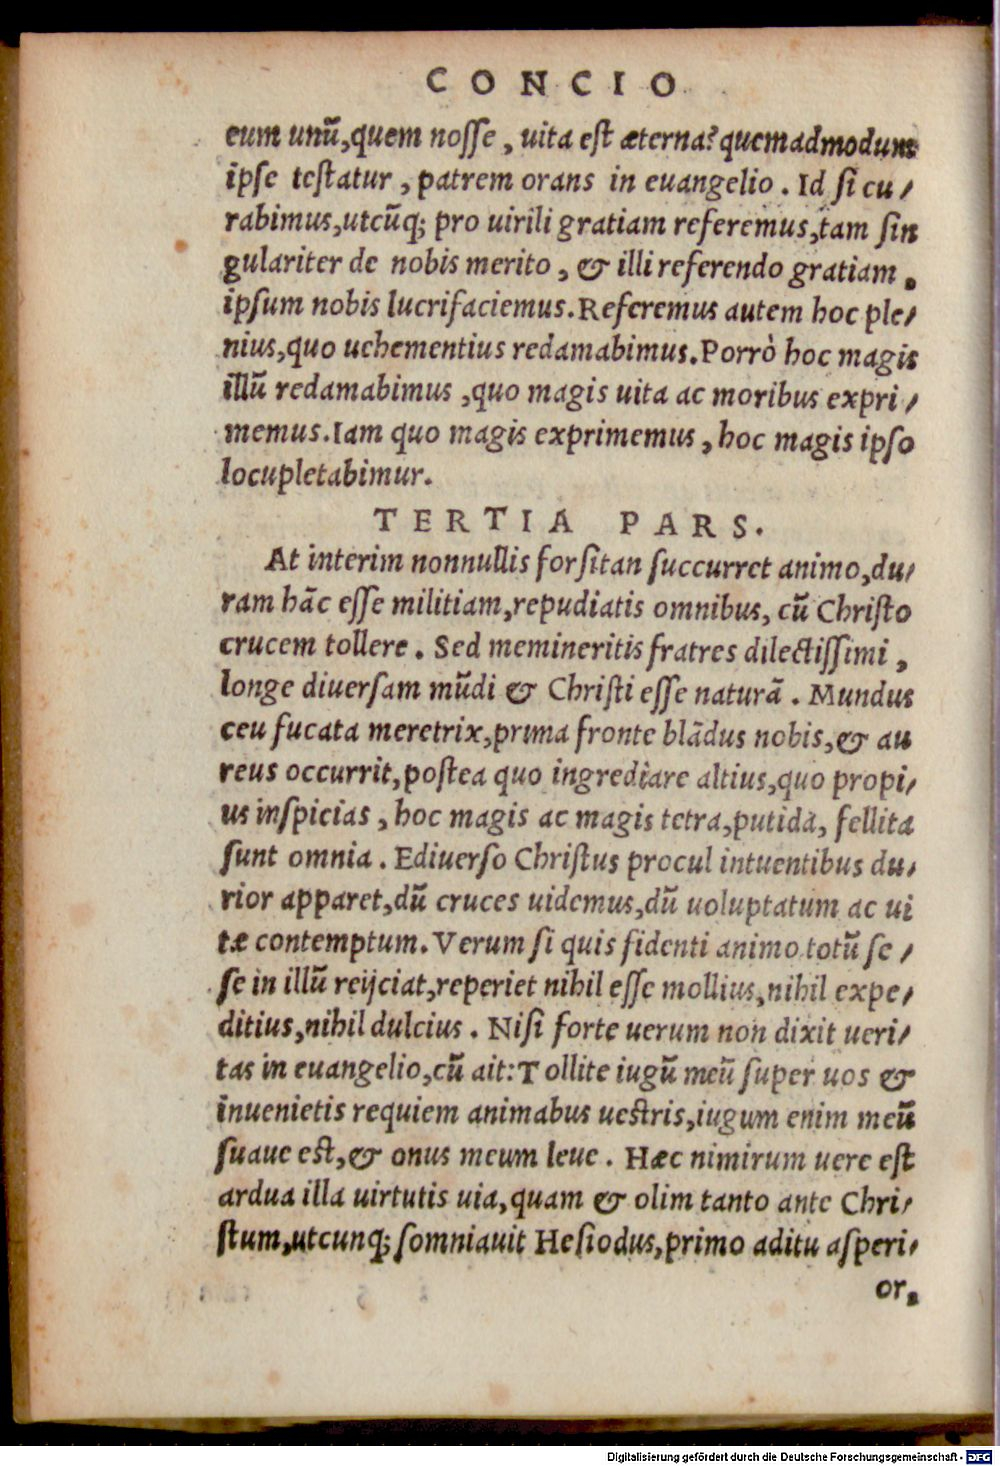 CONCIO
eum unū,quem nosse, uita est æterna? quemadmodum
ipse testatur, patrem orans in euangelio. Id si cu/
rabimus,utcūq; pro uirili gratiam referemus,tam sin
gulariter de nobis merito, & illi referendo gratiam.
ipsum nobis lucrifaciemus.Referemus autem hoc ple/
nius,quo uehementius redamabimus.Porrò hoc magis
illū redamabimus,quo magis uita ac moribus expri/
memus.Iam quo magis exprimemus, hoc magis ipso
locupletabimur.
TERTIA PARS.
At interim nonnullis forsitan succurret animo,du/
ram hāc esse militiam,repudiatis omnibus, cū Christo
crucem tollere. Sed memineritis fratres dilectissimi,
longe diuersam mūdi & Christi esse naturā. Mundus
ceu fucata meretrix,prima fronte blādus nobis,& au
reus occurrit,postea quo ingrediare altius,quo propi/
us inspicias, hoc magis ac magis tetra,putida, fellita
sunt omnia. Ediuerso Christus procul intuentibus du/
rior apparet,dū cruces uidemus,dū uoluptatum ac ui
tæ contemptum.Verum si quis fidenti animo totū se/
se in illū reijciat,reperiet nihil esse mollius,nihil expe/
ditius,nihil dulcius. Nisi forte uerum non dixit ueri/
tas in euangelio,cū ait:Tollite iugū meū super uos &
inuenietis requiem animabus uestris,iugum enim meū
suaue est,& onus meum leue. Hæc nimirum uere est
ardua illa uirtutis uia,quam & olim tanto ante Chri/
stum,utcunq; somniauit Hesiodus,primo aditu asperi/
or,
Digitalisierung gefördert durch die Deutsche Forschungsgemeinschaft - DFG